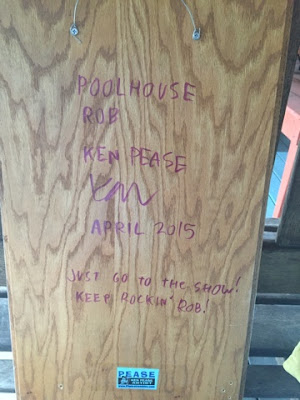 POOLHOUSE
ROB
KEN PEASE
APRIL 2015
JUST GO TO THE SHOW!
KEEP ROCKIN' ROB!
PEASE